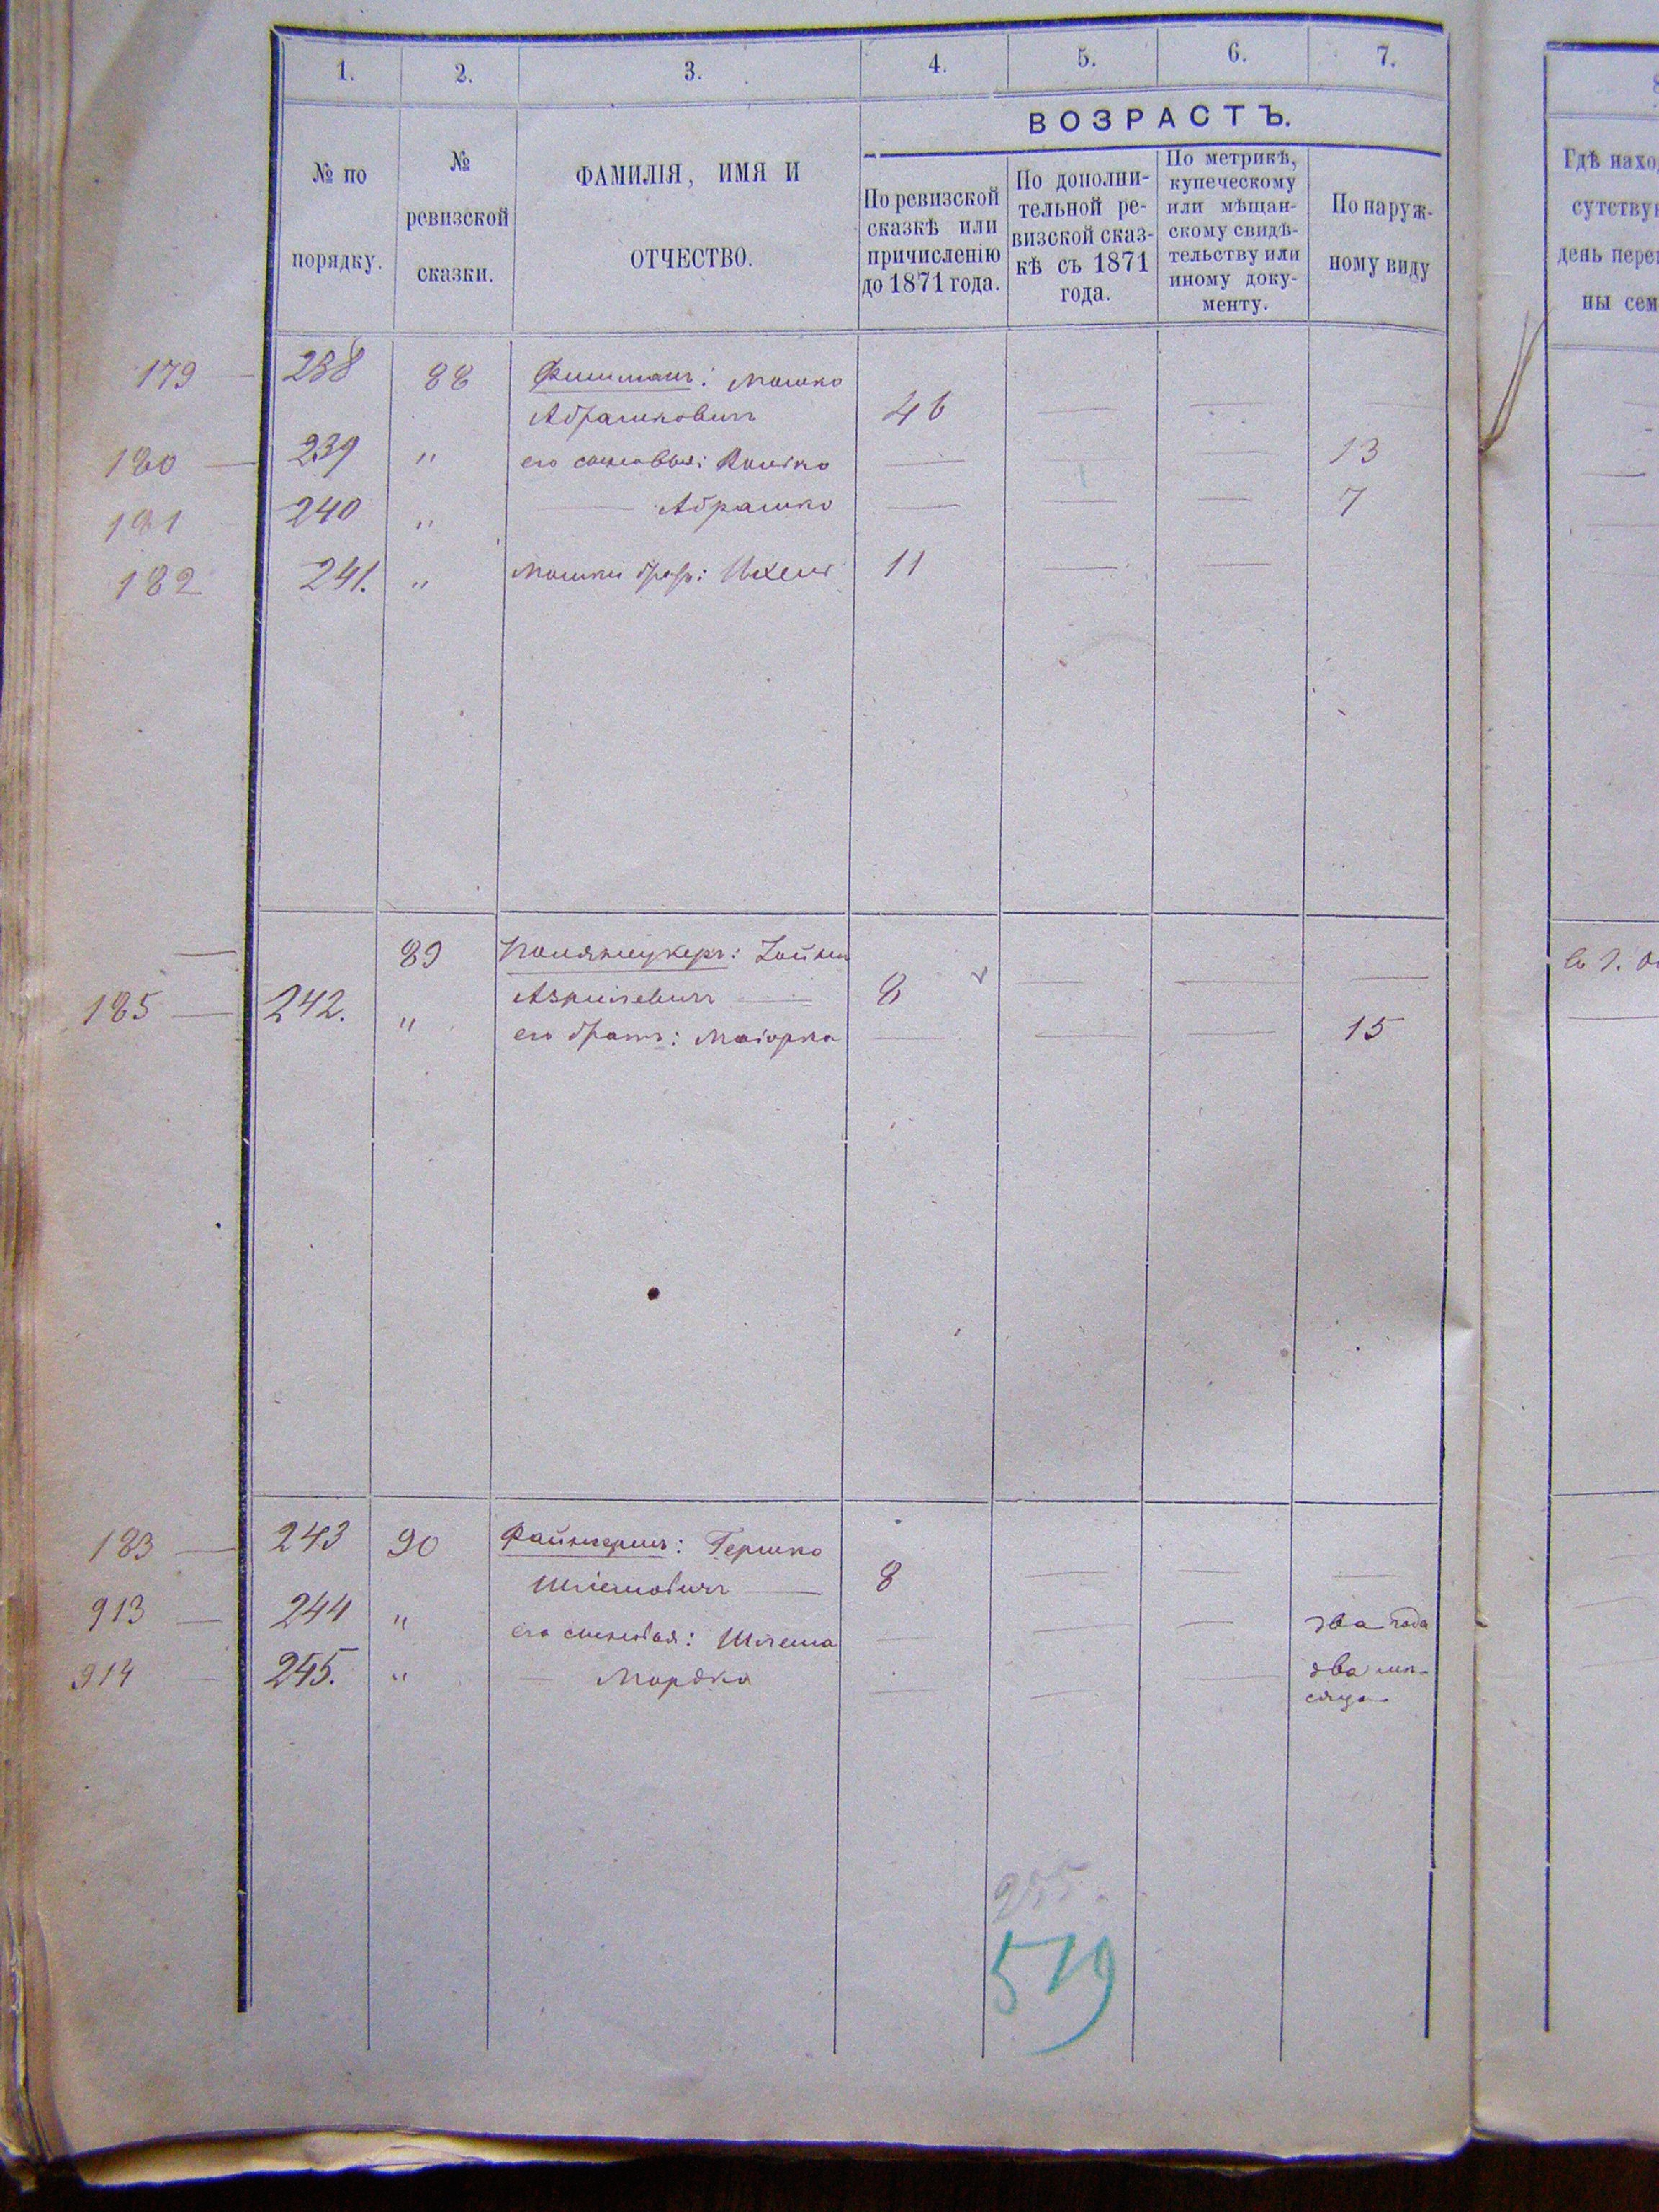 1. 2. 3. 4. 5. 6. 7.
№ по
порядку.
№
ревизской
сказки.
ФАМИЛІЯ, ИМЯ И
ОТЧЕСТВО.
ВОЗРАСТЪ.
По ревизской
сказкѣ или
причисленію
до 1871 года.
По дополни-
тельной ре-
визской сказ-
кѣ съ 1871
года.
По метрикѣ,
купеческому
или мѣщан-
скому свидѣ-
тельству или
иному доку-
менту.
По наруж-
ному виду
179 — 238 88 Фишманъ: Мошко
Абрашковичъ 46 — —
180 — 239 " его сыновья: — — — 13
181 240 " — Абрашко — — — 7
182 241. " Мошки братъ: Ихель 11 — —
— 89 Зойна
Азрилевичъ — 8 — — —
185 — 242. " его братъ: Маіорка — — — 15
183 — 243 90 Гершко
Шлiомовичъ — 8 — — —
913 — 244 " его сыновья: Шлема — — — два года
914 245. " — Мордко — — — два мѣ-
сяца
519
Гдѣ нахо
сутству
день пере
ны сем